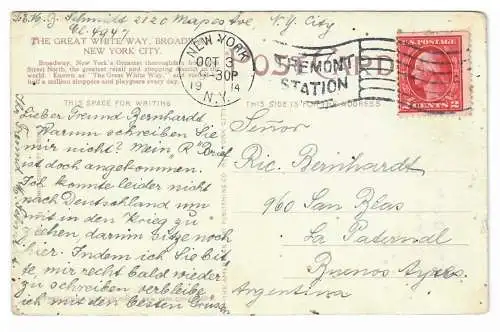 Schmidt 2120 Mapes Ave, N.Y. City
THE GREAT WHITE WAY, BROADWAY
NEW YORK CITY.
Broadway, New York's Greatest thoroughfare
Street North, the greatest retail and shopping
world. Known as "The Great White Way,"
half a million shoppers and playgoers every day.
NEW YORK
OCT 3
9-30P
19 14
N.Y.
TREMONT
STATION
POST CARD
U.S. POSTAGE
2 CENTS 2
THIS SPACE FOR WRITING
THIS SIDE IS FOR THE ADDRESS
Lieber Freund Bernhardt
Warum schreiben Sie
mir nicht? Mein "R" Brief
ist doch angekommen.
Ich konnte leider nicht
nach Deutschland um
mit in den Krieg zu
ziehen darum sitze noch
hier. Indem ich Sie bit
te, mir recht bald wieder
zu schreiben verbleibe
ich mit den besten Grüssen
Señor
Ric. Bernhardt
960 San Blas
La Paternal
Buenos Ayres
Argentina